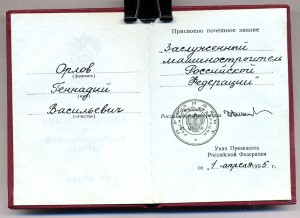 Орлов
(фамилия)
Геннадий
(имя)
Васильевич
(отчество)
Присвоено почетное звание
Заслуженный
машиностроитель
Российской
Федерации
Президент
Российской Федерации
Указ Президента
Российской Федерации
от „1“ апреля 1995 г.